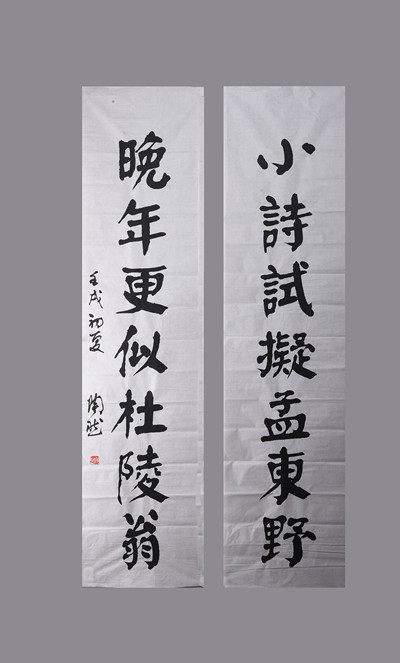 小詩試擬孟東野
晚年更似杜陵翁
壬戌初夏